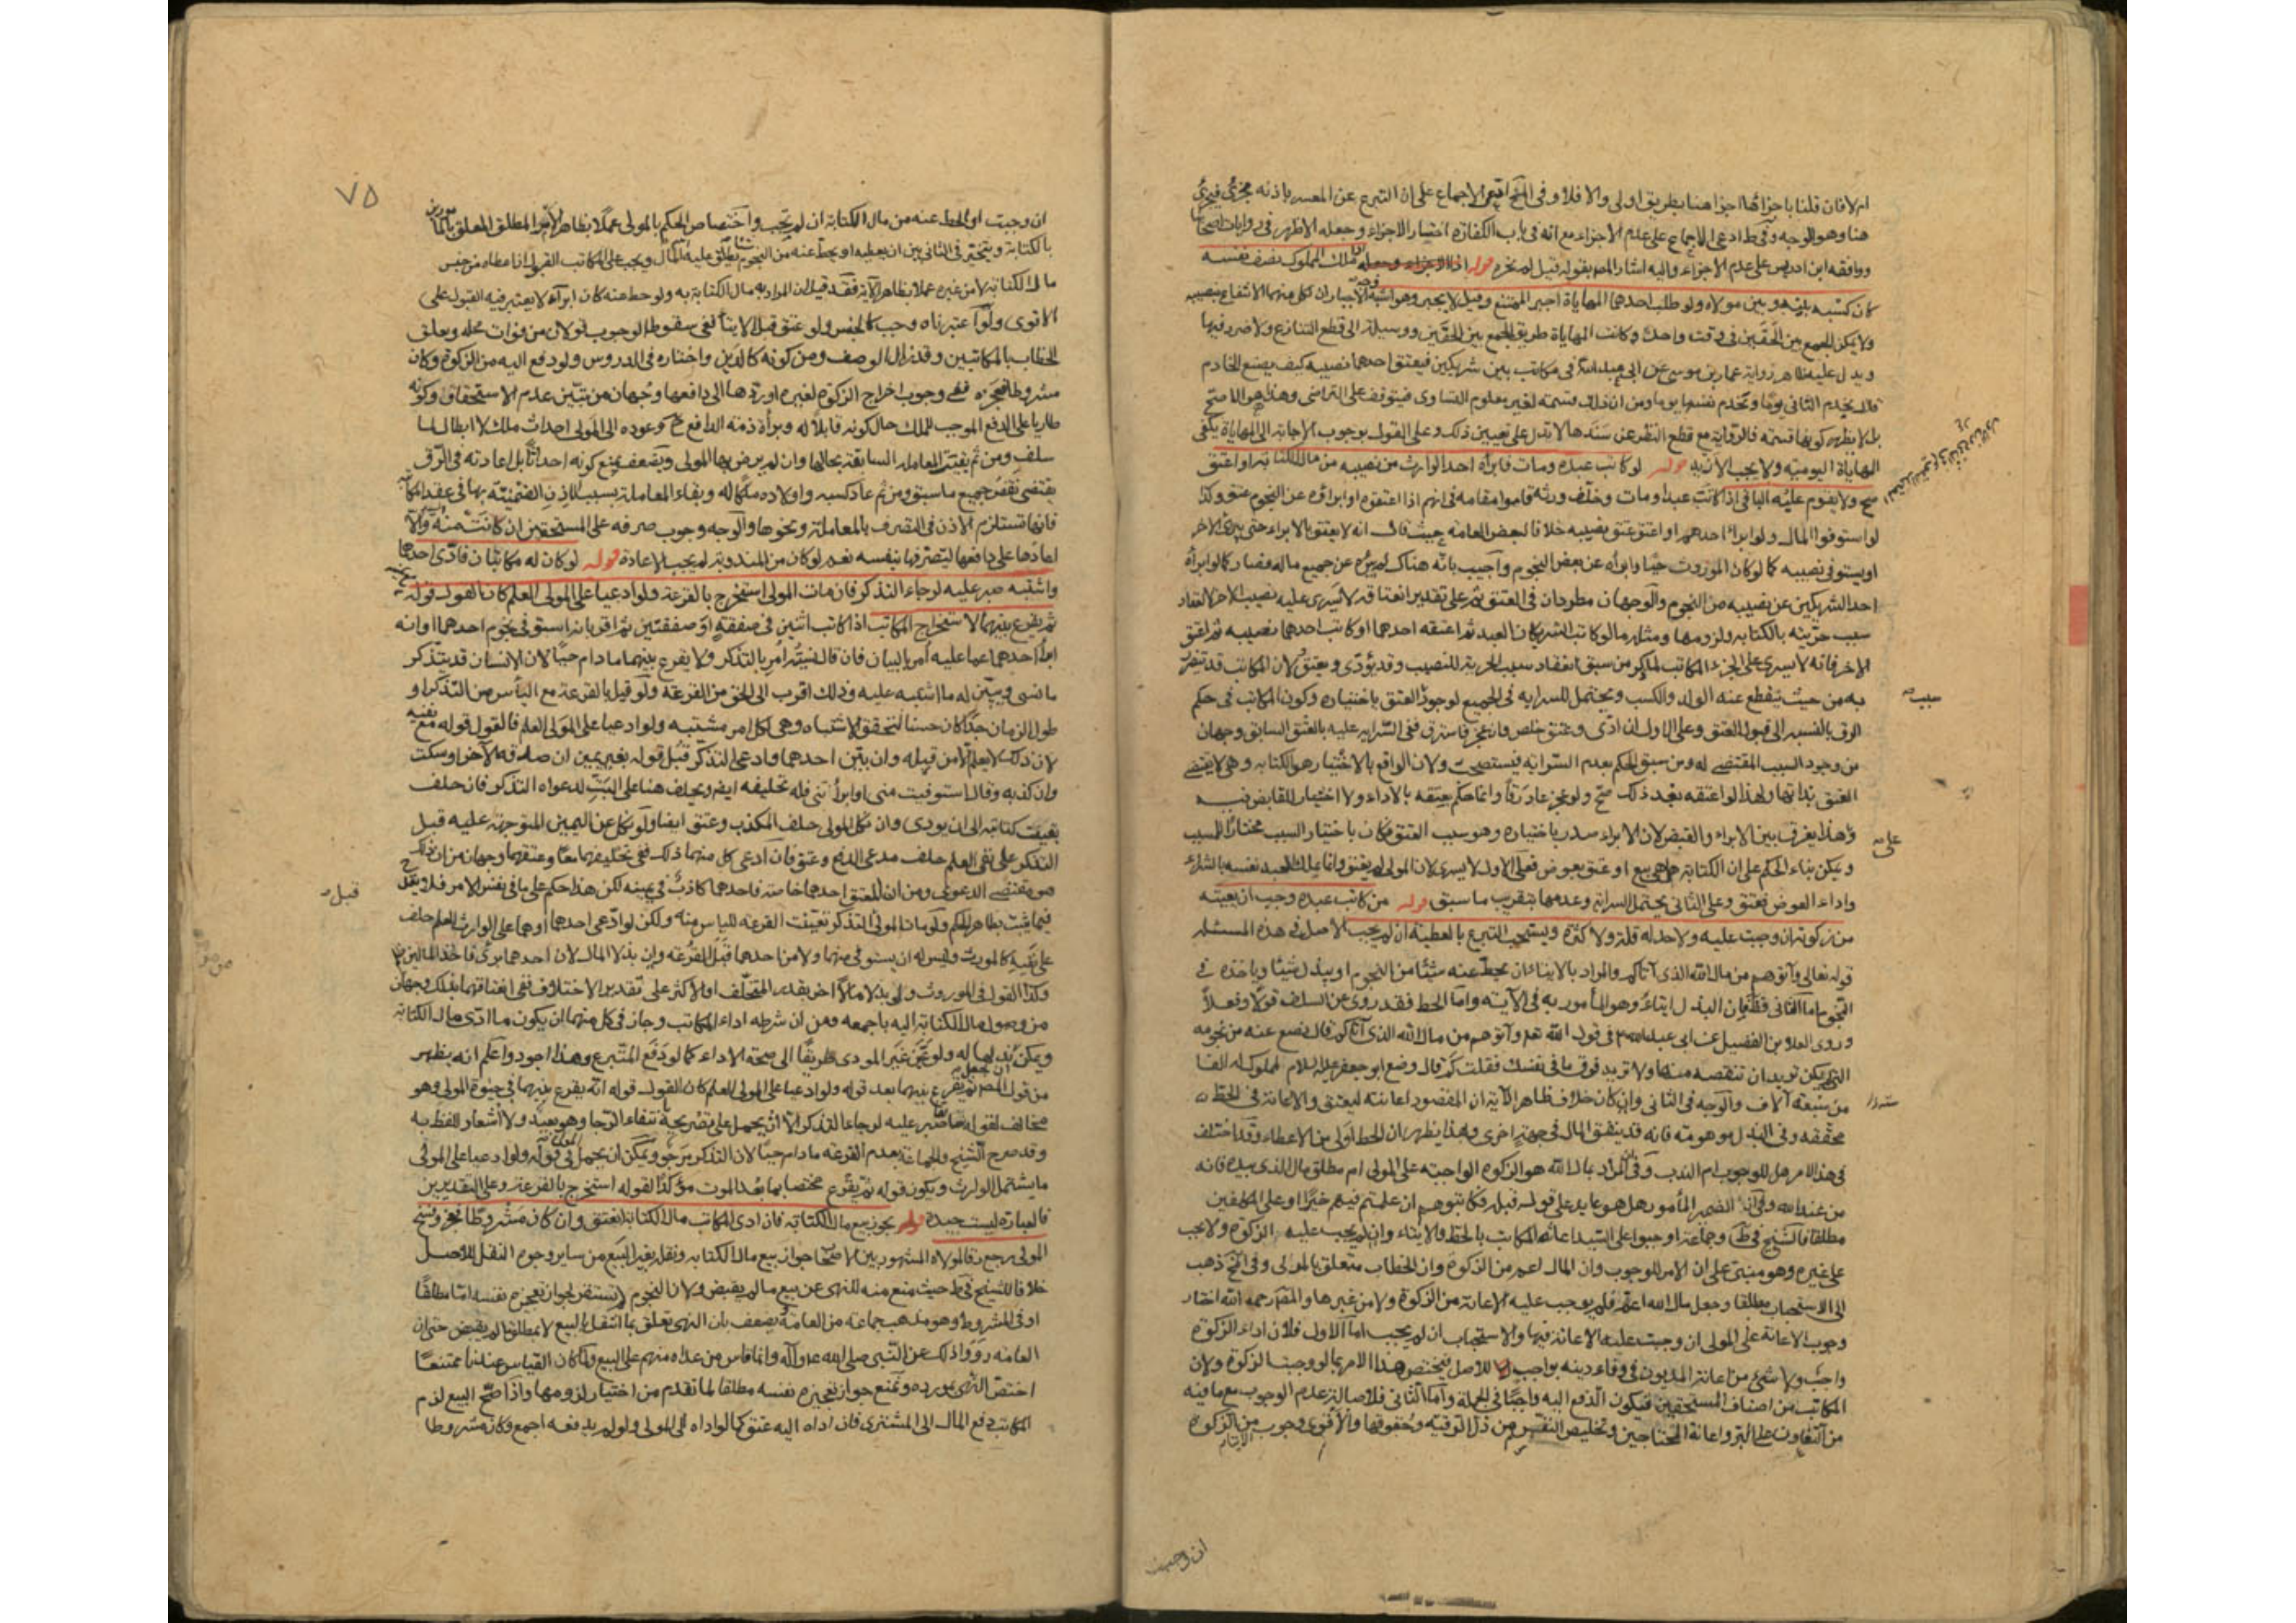 ام لا فان قلنا باجزائها اجزأ هنا بطريق اولى والا فلا وفى الاجماع على ان التبرع عن المعسر باذنه مجزئ فيجزئ
هنا وهو الوجه وفى ط ادعى الاجماع على عدم الاجزاء مع انه فى باب الكفارة اختار الاجزاء وجعله الاظهر فى روايات اصحابنا
ووافقه ابن ادريس على عدم الاجزاء واليه اشار المص بقوله قيل لم يجزه قوله اذا ملك المملوك نصف نفسه
كان كسبه بينه وبين مولاه ولو طلب احدهما المهاياة اجبر الممتنع وقيل لا يجبر وهو اشبه الاجبار ان لكل منهما الانتفاع بنصيبه
ولا يمكن الجمع بين الحقين فى وقت واحد وكانت المهاياة طريق الجمع بين الحقين ووسيلة الى قطع التنازع ولا ضرر فيها
ويدل عليه ظاهر رواية عمار بن موسى عن ابى عبد الله فى مكاتب بين شريكين فيعتق احدهما نصيبه كيف يصنع الخادم
قال يخدم الثانى يوما ويخدم نفسها يوما ومن ان ذلك قسمة لغير معلوم التساوى فيتوقف على التراضى وهذا هو الاصح
بل لا يظهر كونها قسمة فالرواية مع قطع النظر عن سندها لا تدل على تعيين ذلك وعلى القول بوجوب الاجابة الى المهاياة يكفى
المهاياة اليومية ولا يجب الازيد قوله لو كاتب عبده ومات فابرأه احد الوارث من نصيبه من مال الكتابة او اعتق
صح ولا يقوم عليه الباقى اذا كاتب عبدا ومات وخلف ورثة قاموا مقامه فى انهم اذا اعتقوه او ابراؤه عن النجوم عتق وكذا
لو استوفوا المال ولو ابرأ احدهم او اعتق عتق نصيبه خلافا لبعض العامة حيث قال انه لا يعتق بالابراء حتى يبرئ الاخر
او يستوفى نصيبه كما لو كان الموروث حيا وابرأه عن بعض النجوم واجيب بانه هناك لم يبرئه عن جميع ماله فصار كما لو ابرأه
احد الشريكين عن نصيبه من النجوم والوجهان مطردان فى العتق ثم على تقدير انعتاقه لا يسرى عليه نصيب الاخر لانعقاد
سبب حريته بالكتابة ولزومها ومثله ما لو كاتب الشريكان العبد ثم اعتقه احدهما او كاتب احدهما نصيبه ثم اعتق
الاخر فانه لا يسرى على الجزء المكاتب لما ذكر من سبق انعقاد سبب الحرية للنصيب وقد يؤدى ويعتق ولان المكاتب قد يتضرر
به من حيث ينقطع عنه الولد والكسب ويحتمل السراية فى الجميع لوجود العتق باختياره وكون المكاتب فى حكم
سبب
الرق بالنسبة الى قبول العتق وعلى الاول ان ادى وعتق خلص وان عجز فاسترق ففى السراية عليه بالعتق السابق وجهان
من وجود السبب المقتضى له ومن سبق الحكم بعدم السراية فيستصحب ولان الواقع بالاختيار هو الكتابة وهى لا يقتضى
العتق بذاتها ولهذا لو اعتقه بعد ذلك صح ولو عجز عاد رقا وانما حكم بعتقه بالاداء ولا اختيار للقابض فيه
وهذا يفرق بين الابراء والقبض لان الابراء صدر باختياره وهو سبب العتق فكان باختيار السبب مختارا للمسبب
على
ويمكن بناء الحكم على ان الكتابة هل هى بيع او عتق بعوض فعلى الاول لا يسرى لان المولى لم يعتق وانما ملك العبد نفسه بالشراء
واداء العوض فعتق وعلى الثانى يحتمل السراية وعدمها بتقريب ما سبق قوله من كاتب عبده وجب ان يعينه
من زكوته ان وجبت عليه ولا حد له قلة ولا كثرة ويستحب التبرع بالعطية ان لم يجب الاصل فى هذه المسئلة
قوله تعالى وآتوهم من مال الله الذى آتاكم والمراد بالايتاء ان يحط عنه شيئا من النجوم او يبذل شيئا وياخذه فى
النجوم اما الثانى فظ فان البذل ايتاء وهو المأمور به فى الآية واما الحط فقد روى عن السلف قولا وفعلا
وروى العلا بن الفضيل عن ابى عبد الله فى قول الله تع وآتوهم من مال الله الذى آتاكم قال تضع عنه من نجومه
التى لم يكن تريد ان تنقصه منها ولا تزيد فوق ما فى نفسك فقلت كم قال وضع ابو جعفر عليه السلام لمملوك له الفا
من ستة آلاف والوجه فى الثانى وان كان خلاف ظاهر الآية ان المقصود اعانته ليعتق والاعانة فى الحط
ستة
محققة وفى البذل موهومة فانه قد ينفق المال فى جهة اخرى وبهذا يظهر ان الحط اولى من الاعطاء وقد اختلف
فى هذا الامر هل للوجوب ام الندب وفى ان المراد بمال الله هو الزكوة الواجبة على المولى ام مطلق مال الذى بيده فانه
من عند الله وفى ان الضمير المأمور هل هو عايد على قوله قبله فكاتبوهم ان علمتم فيهم خيرا او على المكلفين
مطلقا فالشيخ فى ط وجماعة اوجبوا على السيد اعانة المكاتب بالحط والايتاء وان لم يجب عليه الزكوة ولا يجب
على غيره وهو مبنى على ان الامر للوجوب وان المال اعم من الزكوة وان الخطاب متعلق بالمولى وفى ذهب
الى الاستحباب مطلقا وجعل مال الله اعم فلم يوجب عليه الاعانة من الزكوة ولا من غيرها والمص رحمه الله اختار
وجوب الاعانة على المولى ان وجبت عليه الاعانة فيها والاستحباب ان لم يجب اما الاول فلان اداء الزكوة
واجب ولا شئ من اعانة المديون فى وفاء دينه بواجب للاصل فيختص هذا الامر بما لو وجبت الزكوة ولان
المكاتب من اصناف المستحقين فيكون الدفع اليه واجبا فى الجملة واما الثانى فلاصالة عدم الوجوب مع ما فيه
من التعاون على البر واعانة المحتاجين وتخليص النفس من ذل الرقية وحقوقها والاقوى وجوب الايتاء من الزكوة
ان وجبت
٧٥
ان وجبت او الحط عنه من مال الكتابة ان لم يجب واختصاص الحكم بالمولى عملا بظاهر الامر المطلق المعلق بالمأمورين
بالكتابة ويتخير فى الثانى بين ان يعطيه او يحط عنه من النجوم شيئا يطلق عليه المال ويجب على المكاتب القبول ان اعطاه من جنس
مال الكتابة لا من غيره عملا بظاهر الآية فقد قيل ان المراد به مال الكتابة ولو حط عنه كان ابراء لا يعتبر فيه القبول على
الاقوى ولو اعتبرناه وجب كالجنس ولو عتق قبل الايتاء ففى سقوط الوجوب قولان من فوات محله وتعلق
الخطاب بالمكاتبين وقد زال الوصف ومن كونه كالدين واختاره فى الدروس ولو دفع اليه من الزكوة وكان
مشروطا فعجزه ففى وجوب اخراج الزكوة لغيره او ردها الى دافعها وجهان من تبين عدم الاستحقاق وكونه
طاريا على الدفع الموجب للملك حال كونه قابلا له وبراءة ذمة الدافع ح وعوده الى المولى احداث ملك لا ابطال لما
سلف ومن ثم بقيت المعاملة السابقة بحالها وان لم يرض بها المولى ويضعف بمنع كونه احداثا بل اعادته فى الرق
يقتضى نقض جميع ما سبق ومن ثم عاد كسبه واولاده ملكا له وبقاء المعاملة بسبب الاذن الضمنية بها فى عقد المكاتبة
فانها تستلزم الاذن فى التصرف بالمعاملة ونحوها والوجه وجوب صرفه على المستحقين ان كانت منه والا
اعادها على دافعها ليتصرف فيها بنفسه نعم لو كان من المندوبة لم يجب الاعادة قوله لو كان له مكاتبان فادى احدهما
واشتبه صبر عليه لرجاء التذكر فان مات المولى استخرج بالقرعة ولو ادعيا على المولى العلم كان القول قوله مع يمينه
ثم يقرع بينهما لاستخراج المكاتب اذا كاتب اثنين فى صفقة او صفقتين ثم اقر بانه استوفى نجوم احدهما او انه
ابرأ احدهما عما عليه امر بالبيان فان قال نسيته امر بالتذكر ولا يقرع بينهما ما دام حيا لان الانسان قد يتذكر
ما نسى ويتبين له ما اشتبه عليه وذلك اقرب الى الحق من القرعة ولو قيل بالقرعة مع اليأس من التذكر او
طول الزمان جدا كان حسنا لتحقق الاشتباه وهى لكل امر مشتبه ولو ادعيا على المولى العلم فالقول قوله مع يمينه
لان ذلك لا يعلم الا من قبله وان بين احدهما وادعى التذكر قبل قوله بغير يمين ان صدقه الآخر او سكت
وان كذبه وقال استوفيت منى او ابرأتنى فله تحليفه ايضا ويحلف هنا على البت لدعواه التذكر فان حلف
بقيت كتابته الى ان يودى وان نكل المولى حلف المكذب وعتق ايضا ولو نكل عن اليمين المتوجهة عليه قبل
التذكر على نفى العلم حلف مدعى الدفع وعتق فان ادعى كل منهما ذلك ففى تحليفهما معا وعتقهما وجهان من ان ذلك
هو مقتضى الدعوى ومن ان المعتق احدهما خاصة فاحدهما كاذب فى يمينه لكن هذا حكم على ما فى نفس الامر فلا
قبل
فيما يثبت بظاهر الحكم ولو مات المولى قبل التذكر تعينت القرعة لليأس منه ولكن لو ادعى احدهما او هما على الوارث العلم حلف
على نفيه كالمورث وليس له ان يستوفى منهما ولا من احدهما قبل القرعة وان بذلا المال لان احدهما برئ فاخذ المالين
وكذا القول فى الموروث ولو بذلا مالا اخر بقدر المتخلف او الاكثر على تقدير الاختلاف ففى انعتاقهما بذلك وجهان
من وصول مال الكتابة اليه باجمعه ومن ان شرطه اداء المكاتب وجاز فى كل منهما ان يكون ما ادى مال الكتابة
من قول المص ثم يقرع بينهما بعد قوله ولو ادعيا على المولى العلم كان القول قوله انه يقرع بينهما فى حيوة المولى وهو
مخالف لقوله سابقا صبر عليه لرجاء التذكر الا ان يحمل على تصريحه بانتفاء الرجا وهو بعيد ولا اشعار للفظ به
وقد صرح الشيخ والجماعة بعدم القرعة ما دام حيا لان التذكر مرجو ويمكن ان يحمل المولى فى قوله ولو ادعيا على المولى
ما يشتمل الوارث ويكون قوله ثم يقرع مختصا بما بعد الموت مؤكدا لقوله استخرج بالقرعة وعلى التقديرين
فالعبارة ليست جيدة قوله يجوز بيع مال الكتابة فان ادى المكاتب مال الكتابة انعتق وان كان مشروطا فعجز وفسخ
المولى رجع رقا لمولاه المشهور بين الاصحاب جواز بيع مال الكتابة ونقله بغير البيع من ساير وجوه النقل للاصل
خلافا للشيخ فى ط حيث منع منه للنهى عن بيع ما لم يقبض ولان النجوم لم تستقر لجواز تعجيزه نفسه اما مطلقا
او فى المشروط وهو مذهب جماعة من العامة ويضعف بان النهى تعلق بما انتقل بالبيع لا مطلق ما لم يقبض حتى ان
العامة رووا ذلك عن النبى صلى الله عليه وآله وانما قاس من عداه منهم على البيع ولما كان القياس عندنا ممتنعا
اختص النهى بمورده ونمنع جواز تعجيزه نفسه مطلقا لما تقدم من اختيار لزومها واذا صح البيع لزم
المكاتب دفع المال الى المشترى فان اداه اليه عتق كما لو اداه الى المولى ولو لم يدفعه اجمع وكان مشروطا